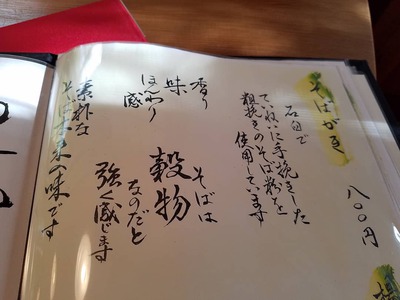 そばがき
八〇〇円
石臼で
ていねいに手挽きした
粗挽きのそば粉を
使用しています
香り
味
ほんわり感
そばは
穀物
なのだと
強く感じます
素朴な
そば本来の味です